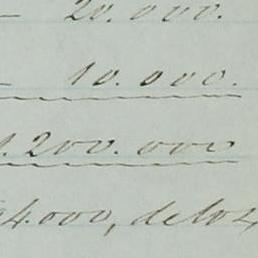 — 20.000.
— 10.000.
1.200.000
4.000, de los